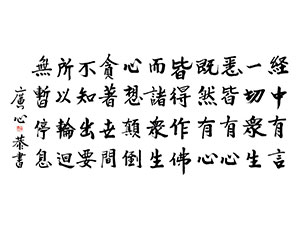 經中有言
一切眾生
悉皆有心
既然有心
皆得作佛
而諸眾生
心想顛倒
貪著世間
不知出要
所以輪迴
無暫停息
廣心恭書